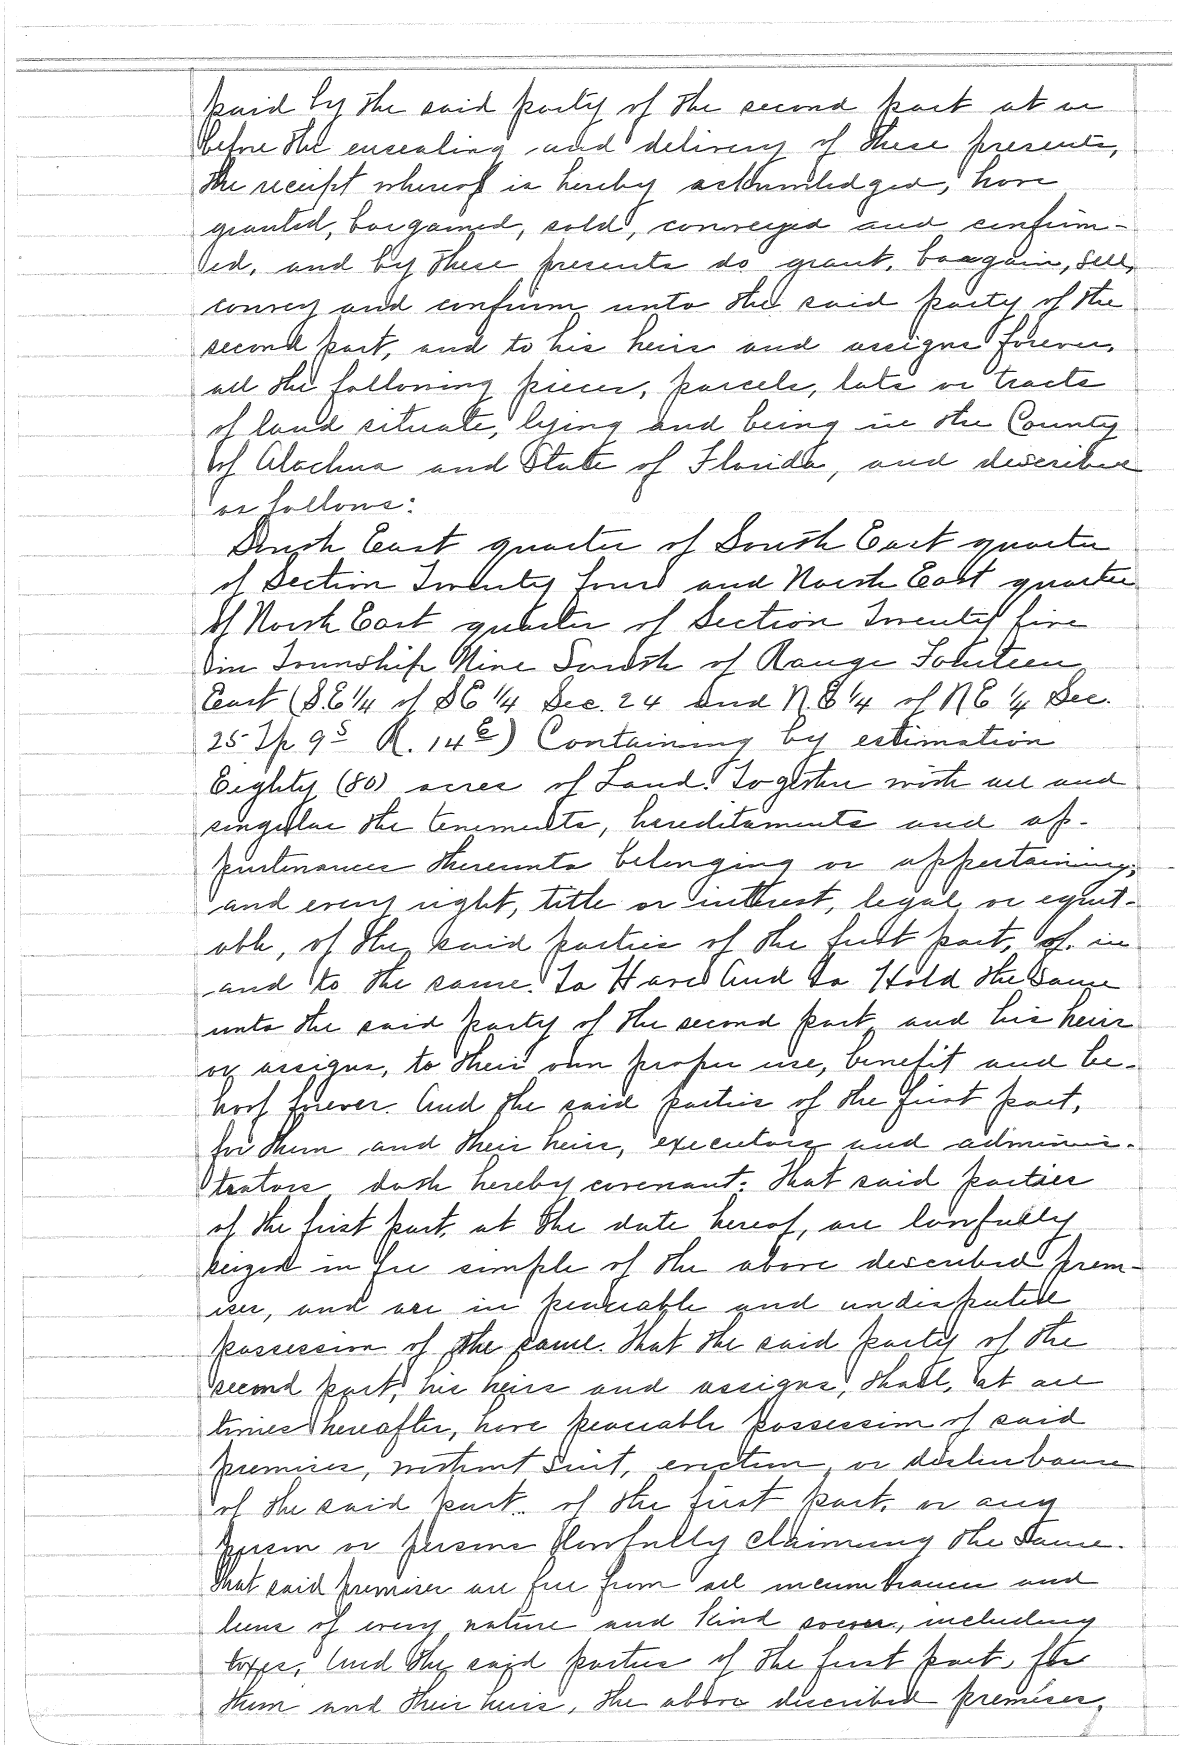 paid by the said party of the second part at or
before the ensealing and delivery of these presents,
the receipt whereof is hereby acknowledged, have
granted, bargained, sold, conveyed and confirm-
ed, and by these presents do grant, bargain, sell,
convey and confirm unto the said party of the
second part, and to his heirs and assigns forever,
all the following pieces, parcels, lots or tracts
of land situate, lying and being in the County
of Alachua and State of Florida, and described
as follows:
South East quarter of South East quarter
of Section Twenty four and North East quarter
of North East quarter of Section Twenty five
in Township Nine South of Range Fourteen
East (S.E 1/4 of S E 1/4 Sec. 24 and N.E 1/4 of N E 1/4 Sec.
25 Tp 9 S R. 14 E) Containing by estimation
Eighty (80) acres of Land. Together with all and
singular the tenements, hereditaments and ap-
purtenances thereunto belonging or appertaining,
and every right, title or interest, legal or equit-
able, of the said parties of the first part, of, in
and to the same. To Have And To Hold the same
unto the said party of the second part and his heirs
or assigns, to their own proper use, benefit and be-
hoof forever. And the said parties of the first part,
for them and their heirs, executors and adminis-
trators doth hereby covenant: That said parties
of the first part, at the date hereof, are lawfully
seized in fee simple of the above described prem-
ises, and are in peaceable and undisputed
possession of the same. That the said party of the
second part, his heirs and assigns, shall, at all
times hereafter, have peaceable possession of said
premises, without suit, eviction or disturbance
of the said part.. of the first part, or any
person or persons lawfully claiming the same.
That said premises are free from all incumbrances and
liens of every nature and kind soever, including
taxes, And the said parties of the first part, for
them and their heirs, the above discribed premises,